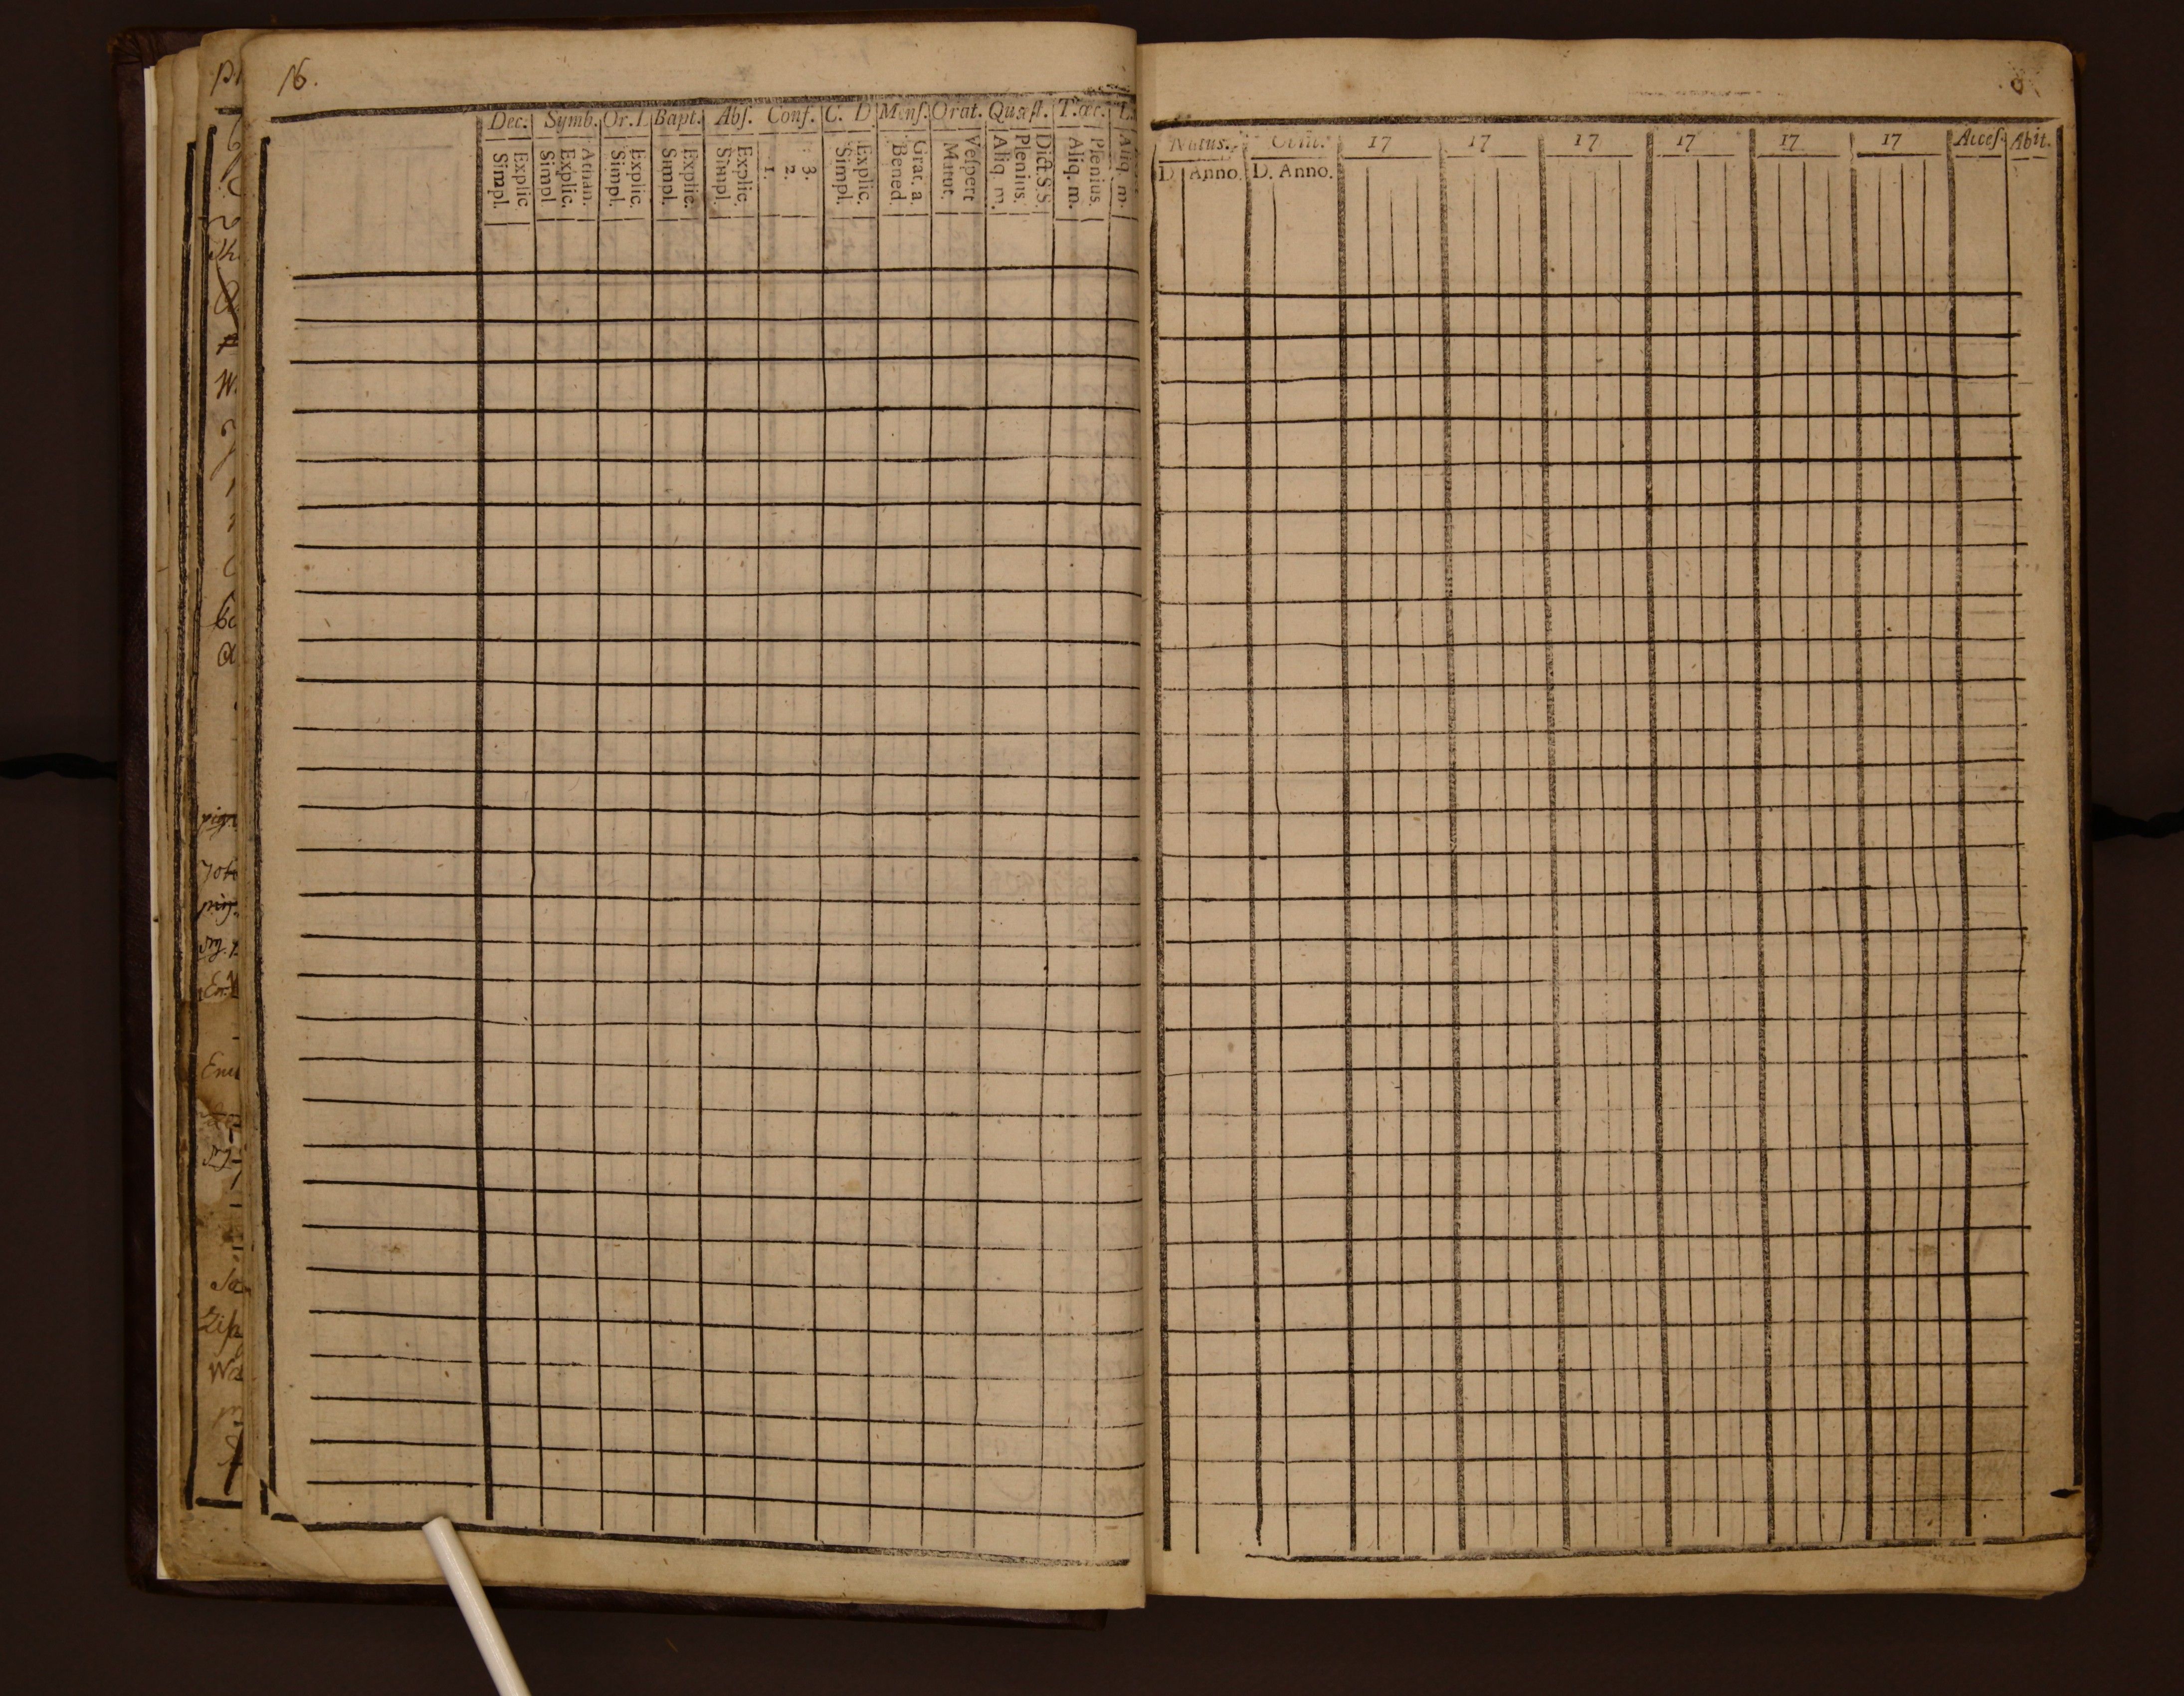 16.
Dec. Symb. Or. D. Bapt. Abſ. Conf. C. D Menſ. Orat. Quæſt. T. œc. L.
Simpl. Explic. Simpl Explic. Athan. Simpl. Explic. Simpl. Explic. Simpl. Explic. 1. 2. 3. Simpl. Explic. Bened. Grat. a. Matut. Veſpert Aliq. m. Plenius. Dict. S S. Aliq. m. Plenius. Aliq. m.
Natus. Obiit. 17 17 17 17 17 17 Acceſ. Abit.
D. Anno. D. Anno.